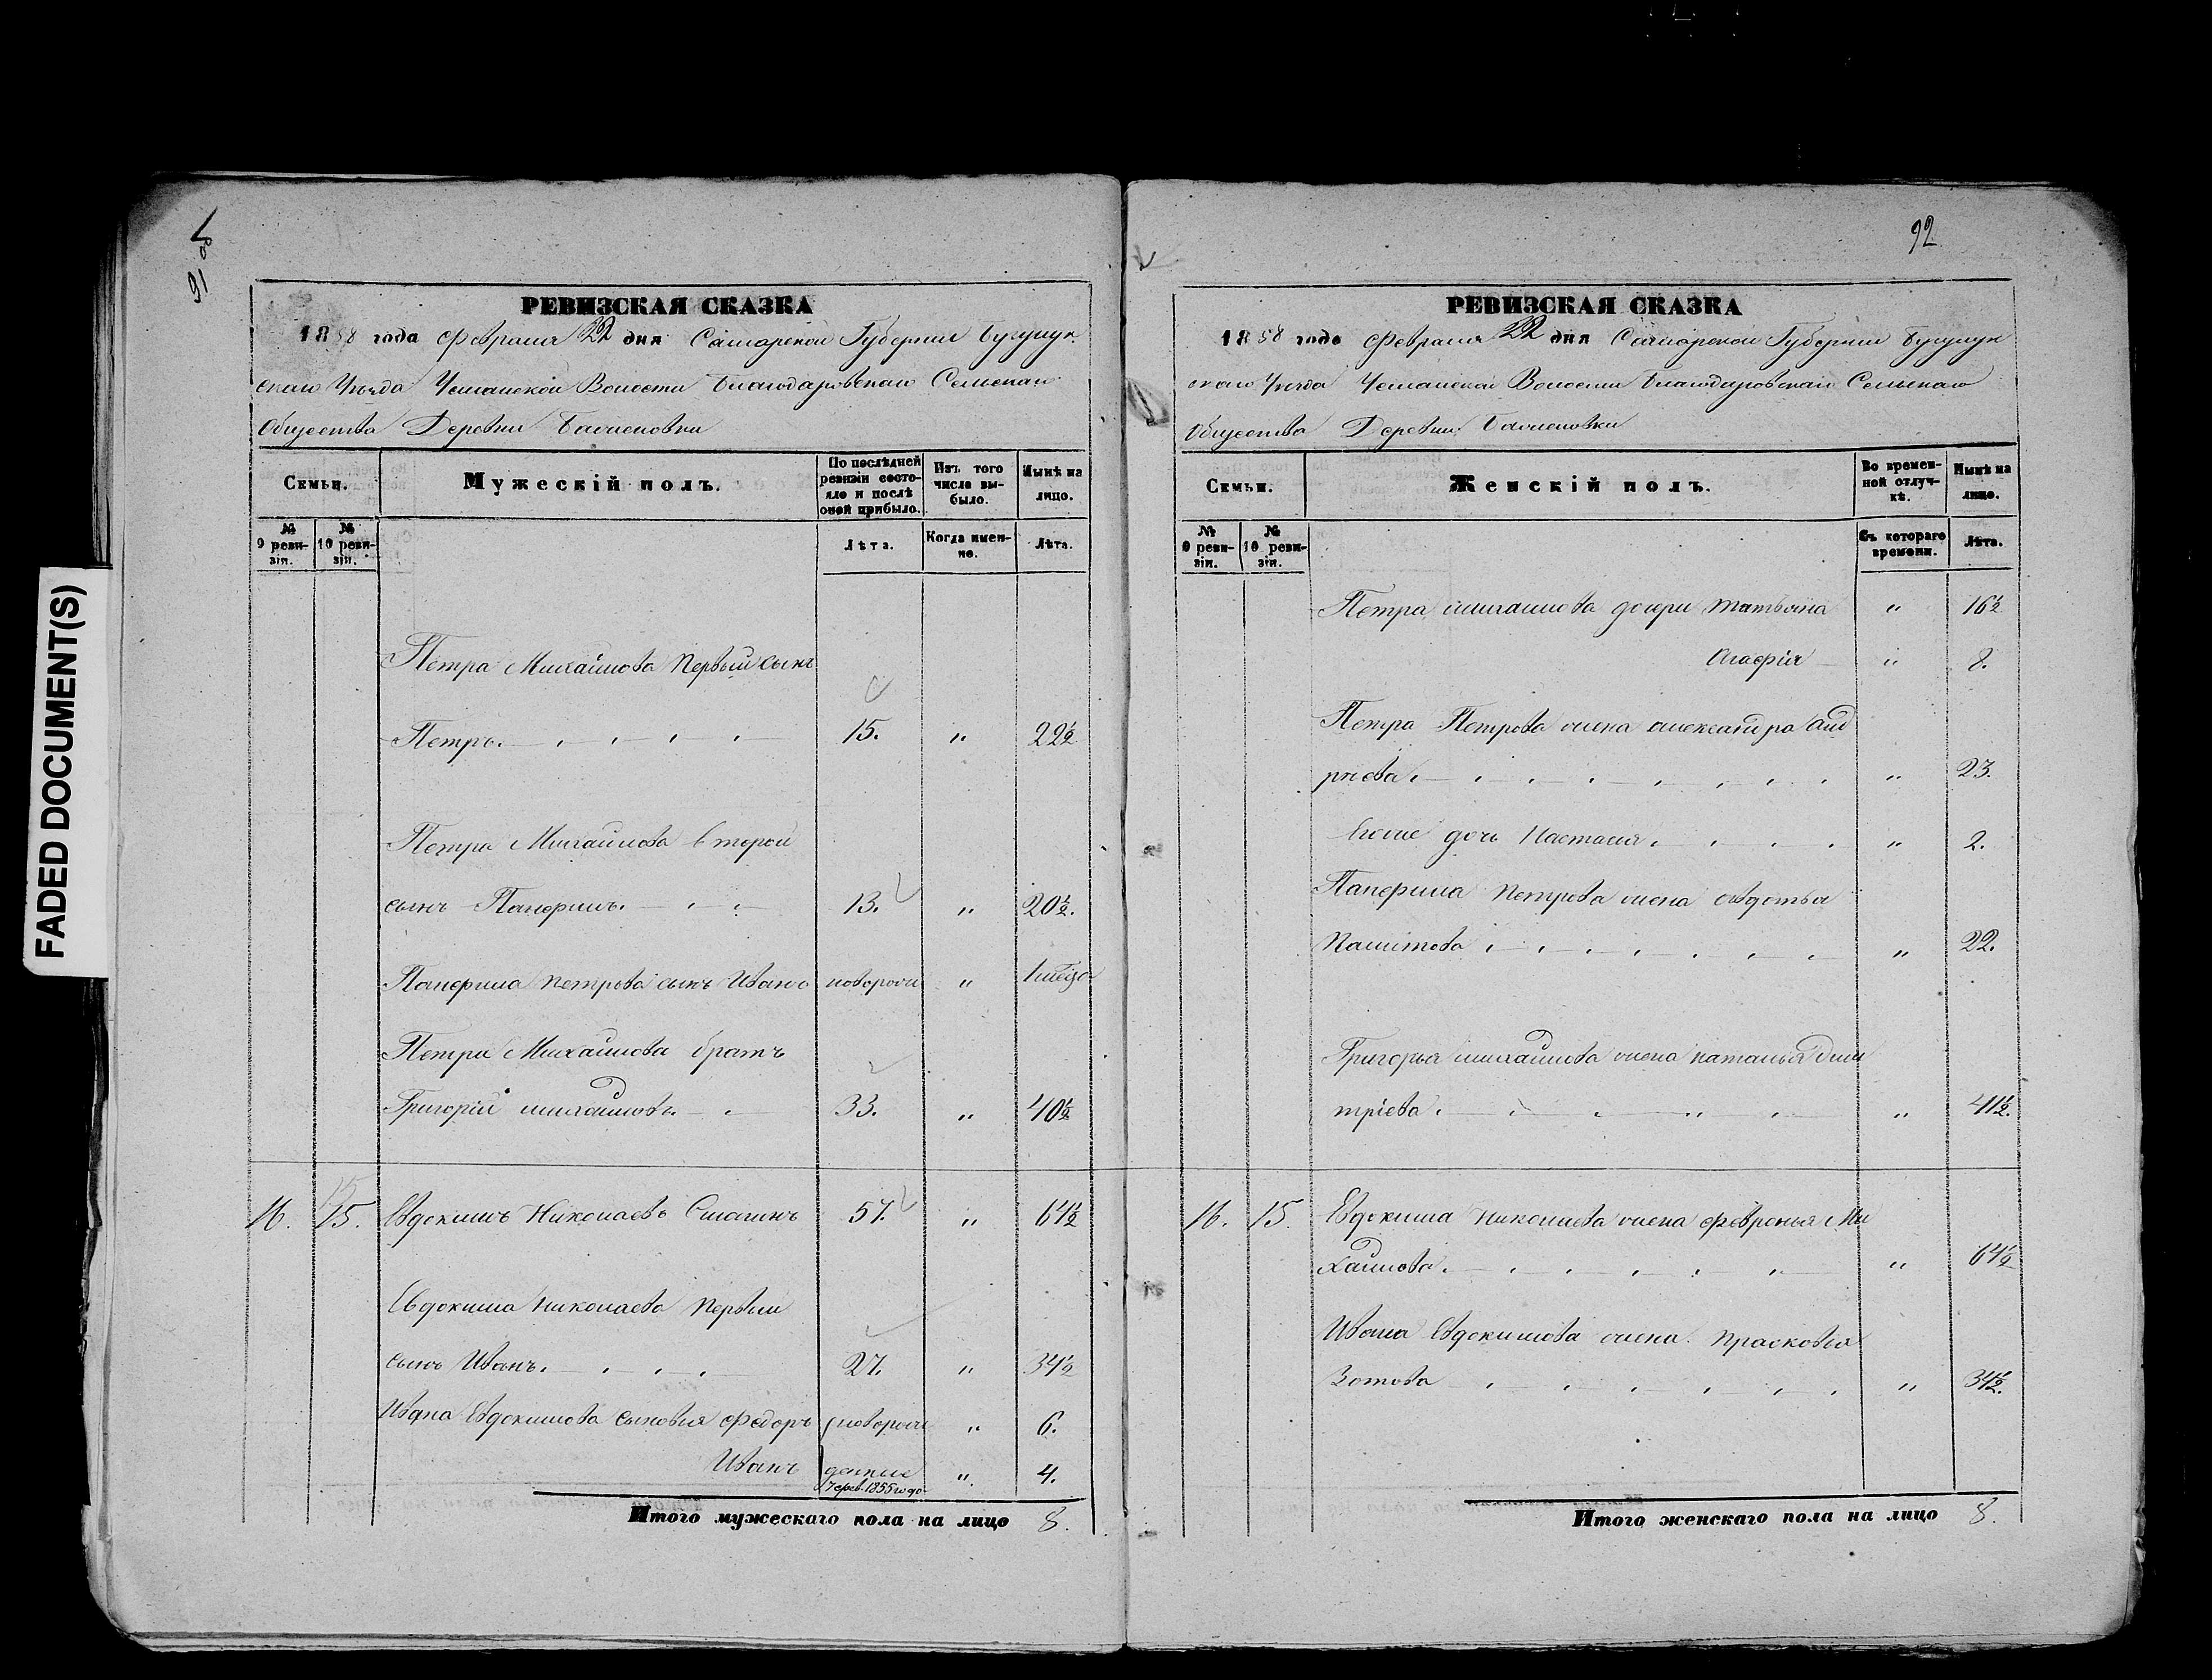 FADED DOCUMENT(S)
91 об
РЕВИЗСКАЯ СКАЗКА
1858 года Февраля 22 дня Самарской Губернии Бузулук
скаго Уѣзда Благодаровскаго Сельскаго
Общества Деревни
Семьи.
Мужескій полъ.
По послѣдней ревизіи состояло и послѣ оной прибыло.
Изъ того числа выбыло.
Нынѣ на лицо.
№ 9 ревизіи.
№ 10 ревизіи.
Лѣта.
Когда именно.
Лѣта.
Петра Михайлова Первый сынъ
Петръ. 15. „ 22½
Петра Михайлова второй
сынъ Панфилъ. 13. „ 20½.
Панфила Петрова сынъ Иванъ новорож „
Петра Михайлова братъ
Григорій Михайловъ. 33. „ 40½
16. 15. Евдокимъ Николаевъ 57. „ 64½
Евдокима Николаева Первый
сынъ Иванъ. 27. „ 34½
Ивана Евдокимова сыновья Федоръ новорож „ 6.
Иванъ денные „ 4.
1855 года
Итого мужескаго пола на лицо 8.
92
РЕВИЗСКАЯ СКАЗКА
1858 года Февраля 22 дня Самарской Губернии Бузулук
скаго Уѣзда Благодаровскаго Сельскаго
Общества Деревни
Семьи.
Женскій полъ.
Во временной отлучкѣ.
Нынѣ на лицо.
№ 9 ревизіи.
№ 10 ревизіи.
Съ котораго времени.
Лѣта.
Петра Михайлова дочери Татьяна „ 16½
Агафія „ 8.
Петра Петрова жена Александра Анд
рѣева. „ 23.
Ихже дочь Настасья. „ 2.
Панфила Петрова жена Авдотья
„ 22.
Григорья Михайлова жена Наталья Дми
тріева. „ 41½.
16. 15. Евдокима Николаева жена Февронья Ми
хайлова. „ 64½
Ивана Евдокимова жена Прасковья
Зотова „ 34½.
Итого женскаго пола на лицо 8.